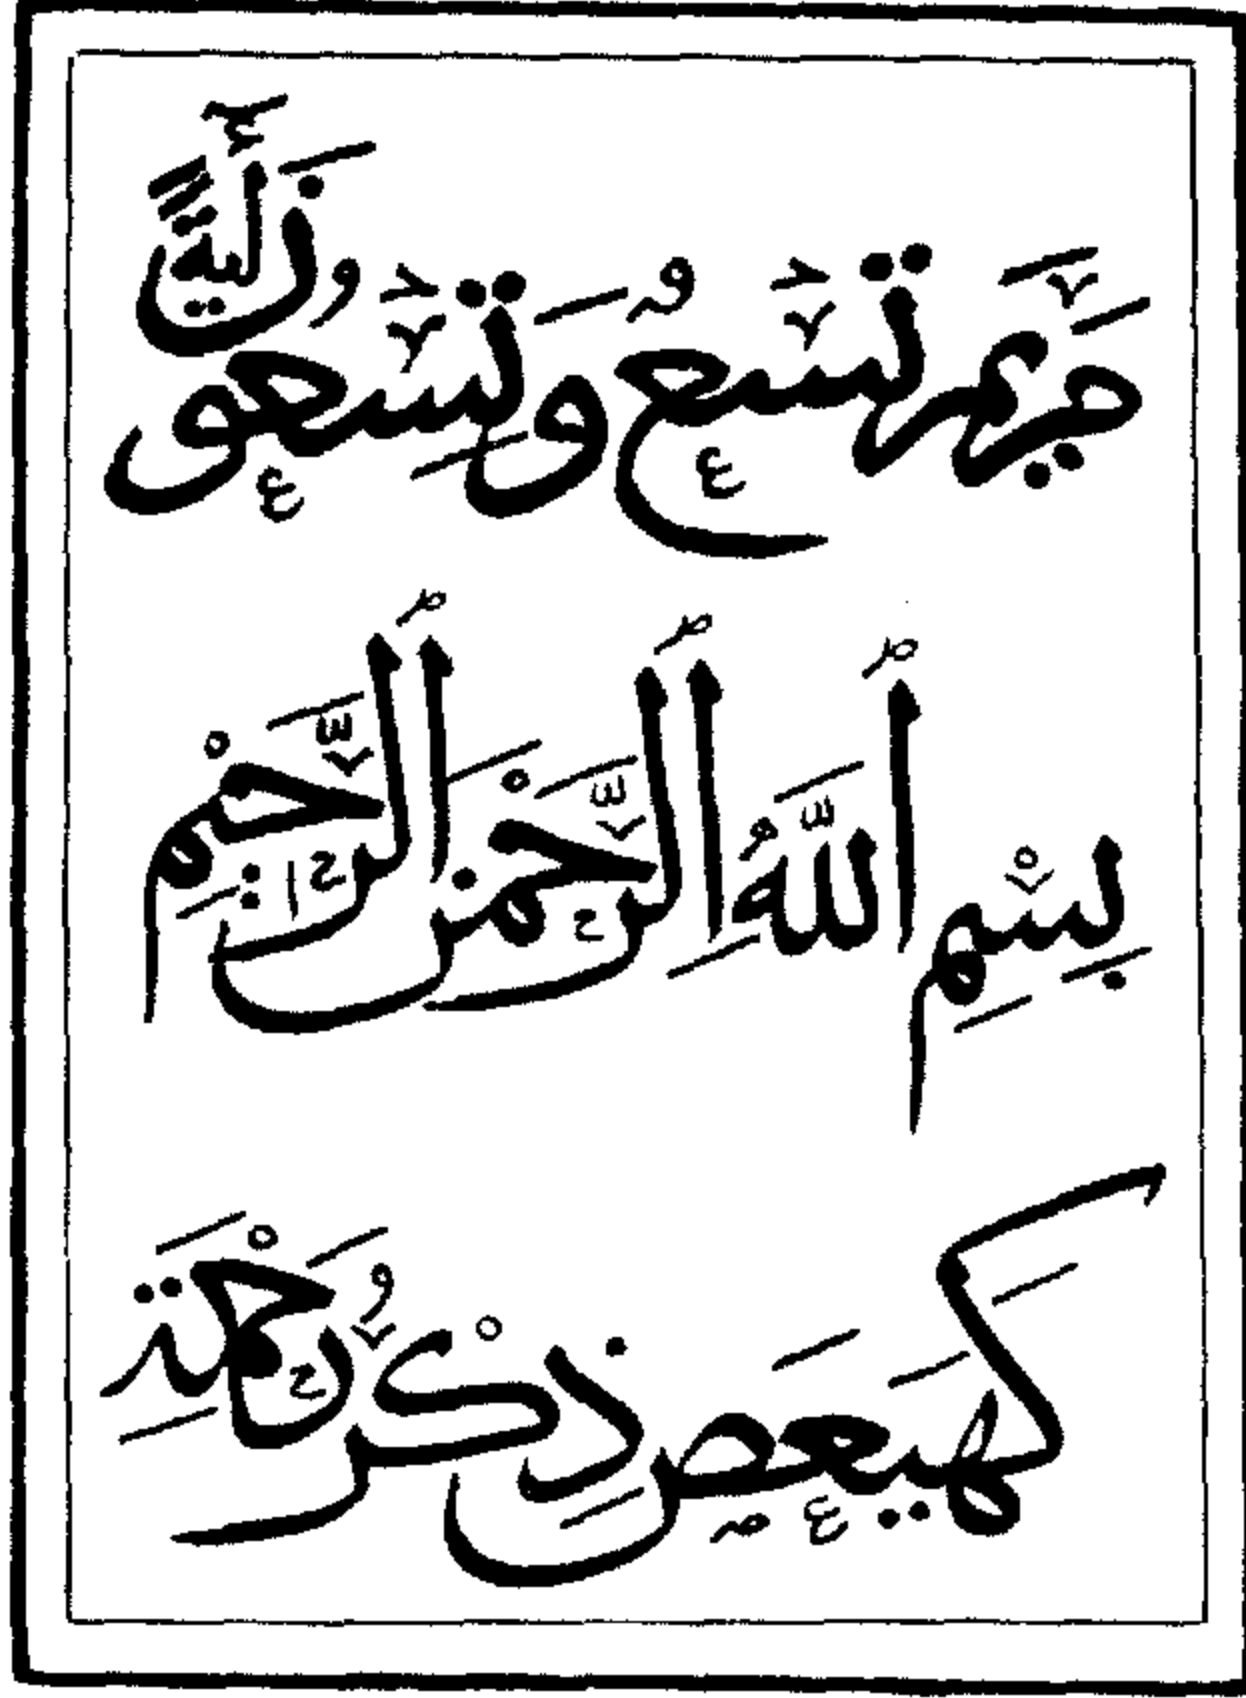 مَرْيَمَ تِسْعٌ وَتِسْعُونَ آيَةً
بِسْمِ ٱللَّهِ ٱلرَّحْمَٰنِ ٱلرَّحِيمِ
كهيعص ذِكْرُ رَحْمَتِ